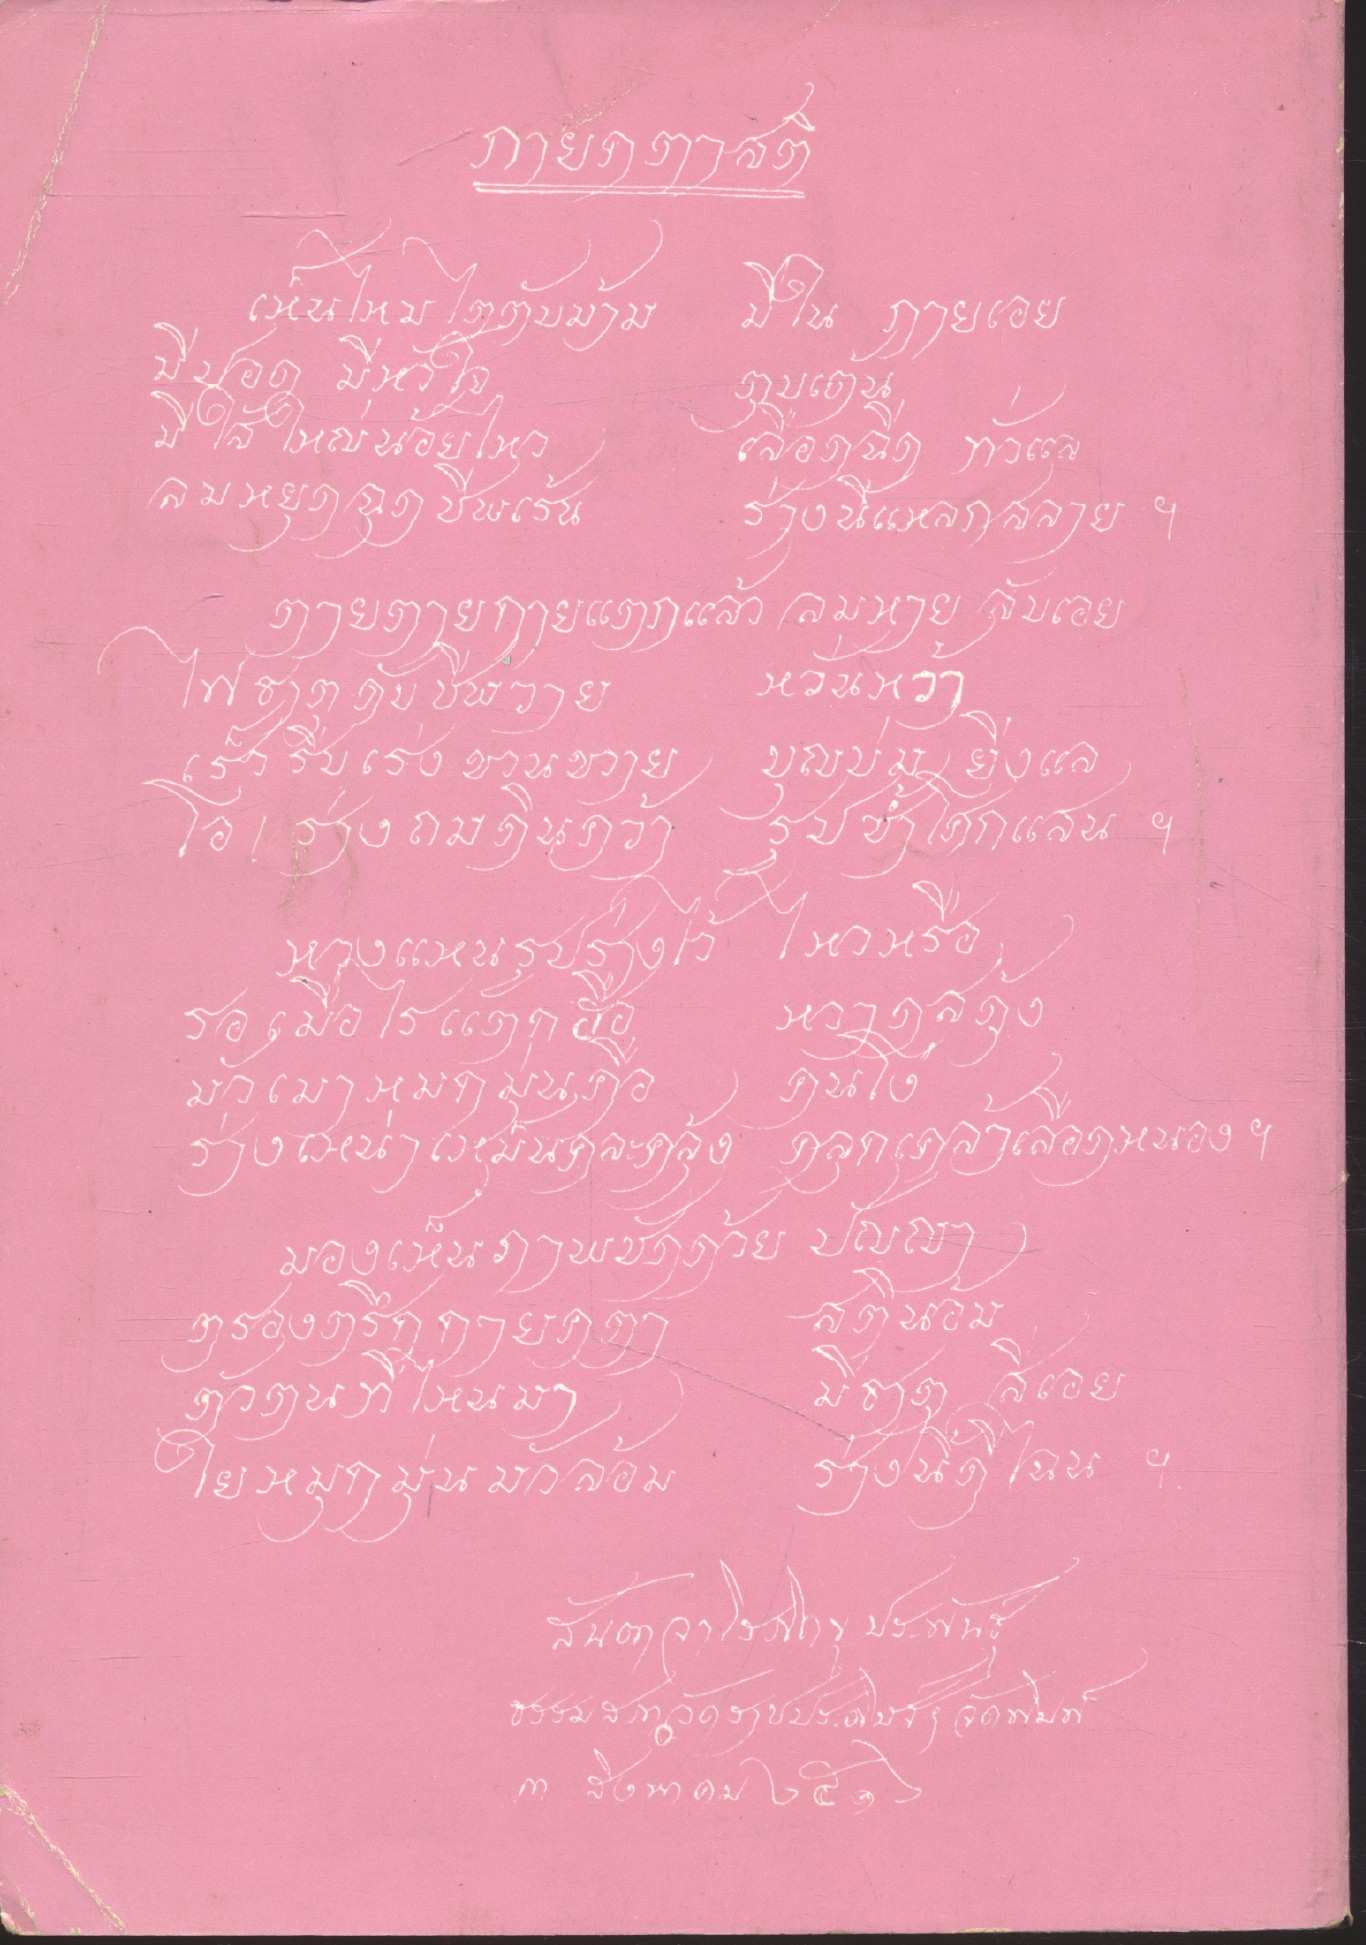 กายคตาสติ
เห็นไหมไตตับม้าม มีใน กายเอย
มีปอด มีหัวใจ ตุบเต้น
มีไส้ใหญ่น้อยไหว เลือดฉีด ทั่วแล
ลมหยุดฉุดชีพเร้น ร่างนี้แหลกสลาย ฯ
ตายตายกายแตกแล้ว ลมหาย ลับเอย
ไฟธาตุดับชีพวาย หวั่นหว้า
เร็วรีบเร่งขวนขวาย บุญบ่ม ยิ่งแล
โอ้! ร่างถมดินคว้า รูปขำโศกแสน ฯ
หวงแหนรูปร่างไว้ ไหวหรือ
รอเมื่อไรแตกฮือ หวาดสดุ้ง
มัวเมาหมกมุ่นถือ ตนโง่
ร่างเหน่าเหม็นคละคลุ้ง คลุกเคล้าเลือดหนอง ฯ
มองเห็นภาพชัดด้วย ปัญญา
ตรองตรึกกายคตา สตินอ้ม
ตัวตนที่ไหนมา มีธาตุ สี่เอย
ใยหมกมุ่นมัวล้อม ร่างนี้ดีไฉน ฯ
สันตจาโรภิกขุ ประพันธ์
ธรรมสภาวัด จัดพิมพ์
๓ สิงหาคม ๒๕๑๖